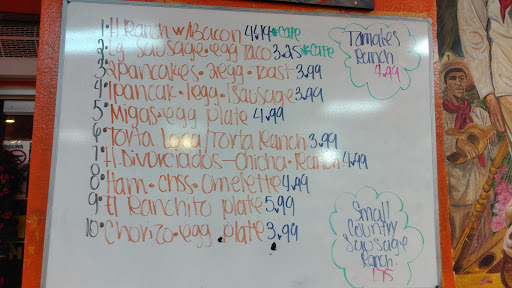 1. H Ranch w/ Bacon 4.49 *CAFE
2. Lg Sausage • egg Taco 3.25 *CAFE
3. 2 Pancakes • 2egg • toast 3.99
4. 1pancak • 1egg • 1sausage 3.99
5. Migas • egg plate 4.99
6. Torta Loca / Torta Ranch 3.99
7. H. Divorciados - Chicha • Ranch 4.99
8. Ham • chss • omelette 4.99
9. El Ranchito plate 5.99
10. Chorizo • egg plate 3.99
Tamales
Ranch
4.99
Small
Country
Sausage
Ranch